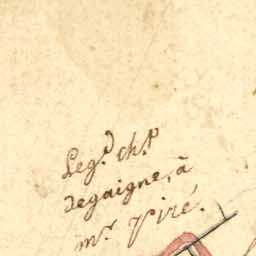 Leg.d ch.p
degaigne, à
m.r Viré.